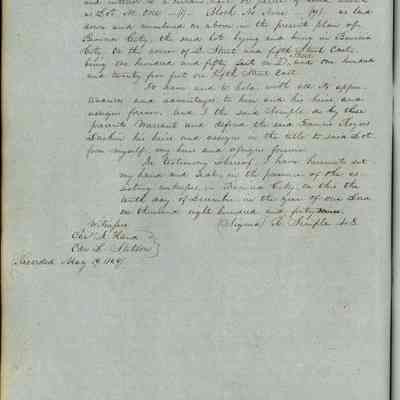 and interest to a certain part or parcel of land known
as Lot No. One — "1" — Block No Nine "9" as laid
down and numbered as above in the present plan of
Benicia City, the said lot lying and being in Benicia
City, on the corner of D. Street and fifth Street East,
being one hundred and fifty feet on D. Street and one hundred
and twenty five feet on fifth Street East.
To have and to hold with all its appur
tenances and advantages to him and his heirs and
assigns forever. And I the said Semple do by these
presents Warrant and defend the said Francis Rogers
his heirs and assigns in the title to said Lot
from myself, my heirs and assigns forever.
In Testimony whereof, I have hereunto set
my hand and Seal, in the presence of the
witnesses, in Benicia City, on this the
tenth day of December in the year of our Lord
one thousand eight hundred and forty
Witnesses
(Signed) R. Semple L.S.
Recorded May 19 1849